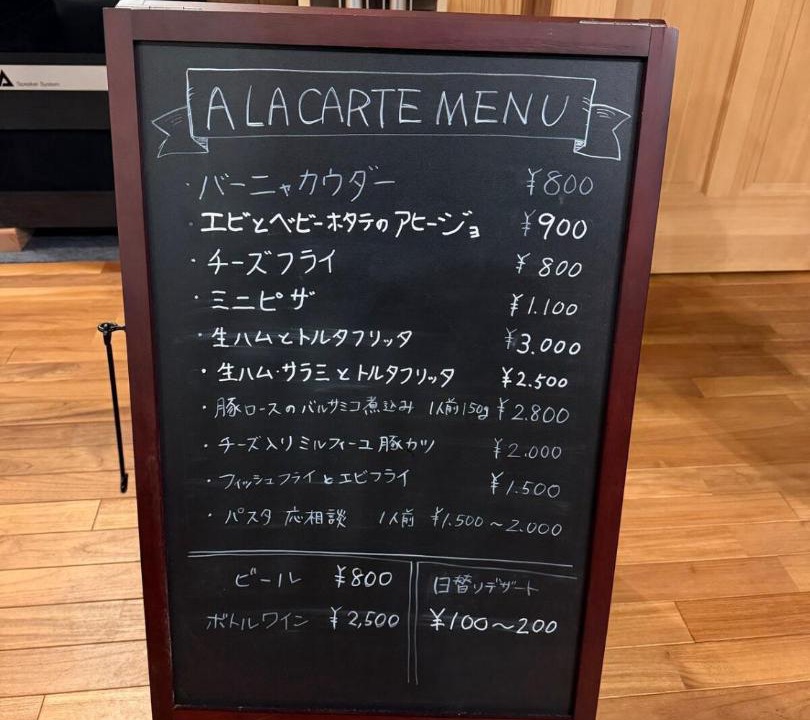 Speaker System
A LA CARTE MENU
・バーニャカウダー ¥800
・エビとベビーホタテのアヒージョ ¥900
・チーズフライ ¥800
・ミニピザ ¥1.100
・生ハムとトルタフリッタ ¥3.000
・生ハム・サラミとトルタフリッタ ¥2.500
・豚ロースのバルサミコ煮込み 1人前150g ¥2.800
・チーズ入りミルフィーユ豚カツ ¥2.000
・フィッシュフライとエビフライ ¥1.500
・パスタ 応相談 1人前 ¥1.500〜2.000
ビール ¥800
ボトルワイン ¥2,500
日替りデザート
¥100〜200